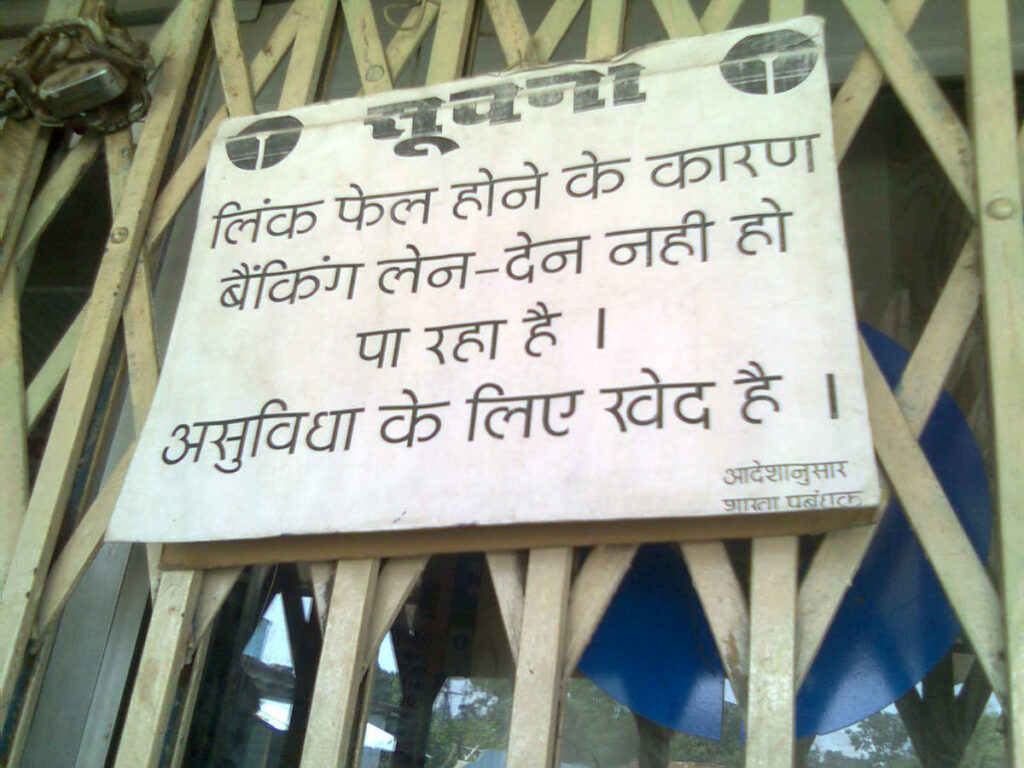 सूचना
लिंक फेल होने के कारण
बैंकिंग लेन-देन नही हो
पा रहा है ।
असुविधा के लिए खेद है ।
आदेशानुसार
शाखा प्रबंधक